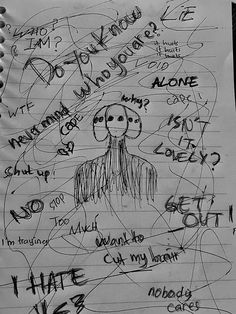 LIE
"WHO
I'M?
Do you know
who you are?
it hurts
it hurts
it hurts
VOID
ALONE
WTF
nevermind
why?
ISN'T
IT
LOVELY?
shut up!
NO
STOP
TOO
MUCH
GET
OUT!
I'm traying
want to
cut my
I HATE
nobody
cares